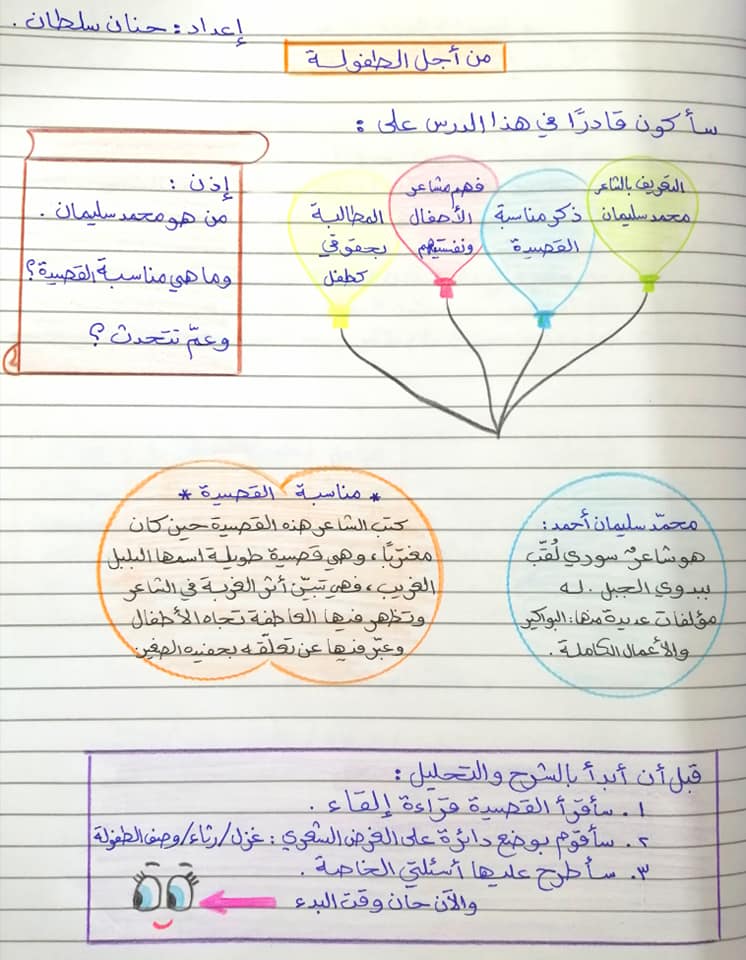 إعداد : حنان سلطان .
من أجل الطفولة
سأكون قادرًا في هذا الدرس على :
التعريف بالشاعر
محمد سليمان
ذكر مناسبة
القصيدة
فهم مشاعر
الأطفال
ونفسيتهم
المطالبة
بحقوقي
كطفل
إذن :
من هو محمد سليمان .
وما هي مناسبة القصيدة ؟
وعمّ تتحدث ؟
محمّد سليمان أحمد :
هو شاعرٌ سوري لُقّب
ببدوي الجبل . له
مؤلفات عديدة منها : البواكير
والأعمال الكاملة .
* مناسبة القصيدة *
كتب الشاعر هذه القصيدة حين كان
مغتربًا ، وهي قصيدة طويلة اسمها البلبل
الغريب ، فهي تبيّن أثر الغربة في الشاعر
وتظهر فيها العاطفة تجاه الأطفال
وعبّر فيها عن تعلّقه بحفيده الصغير
قبل أن أبدأ بالشرح والتحليل :
١. سأقرأ القصيدة قراءة إلقاء .
٢. سأقوم بوضع دائرة على الغرض الشعري : غزل / رثاء / وصف الطفولة
٣. سأطرح عليها أسئلتي الخاصة .
والآن حان وقت البدء